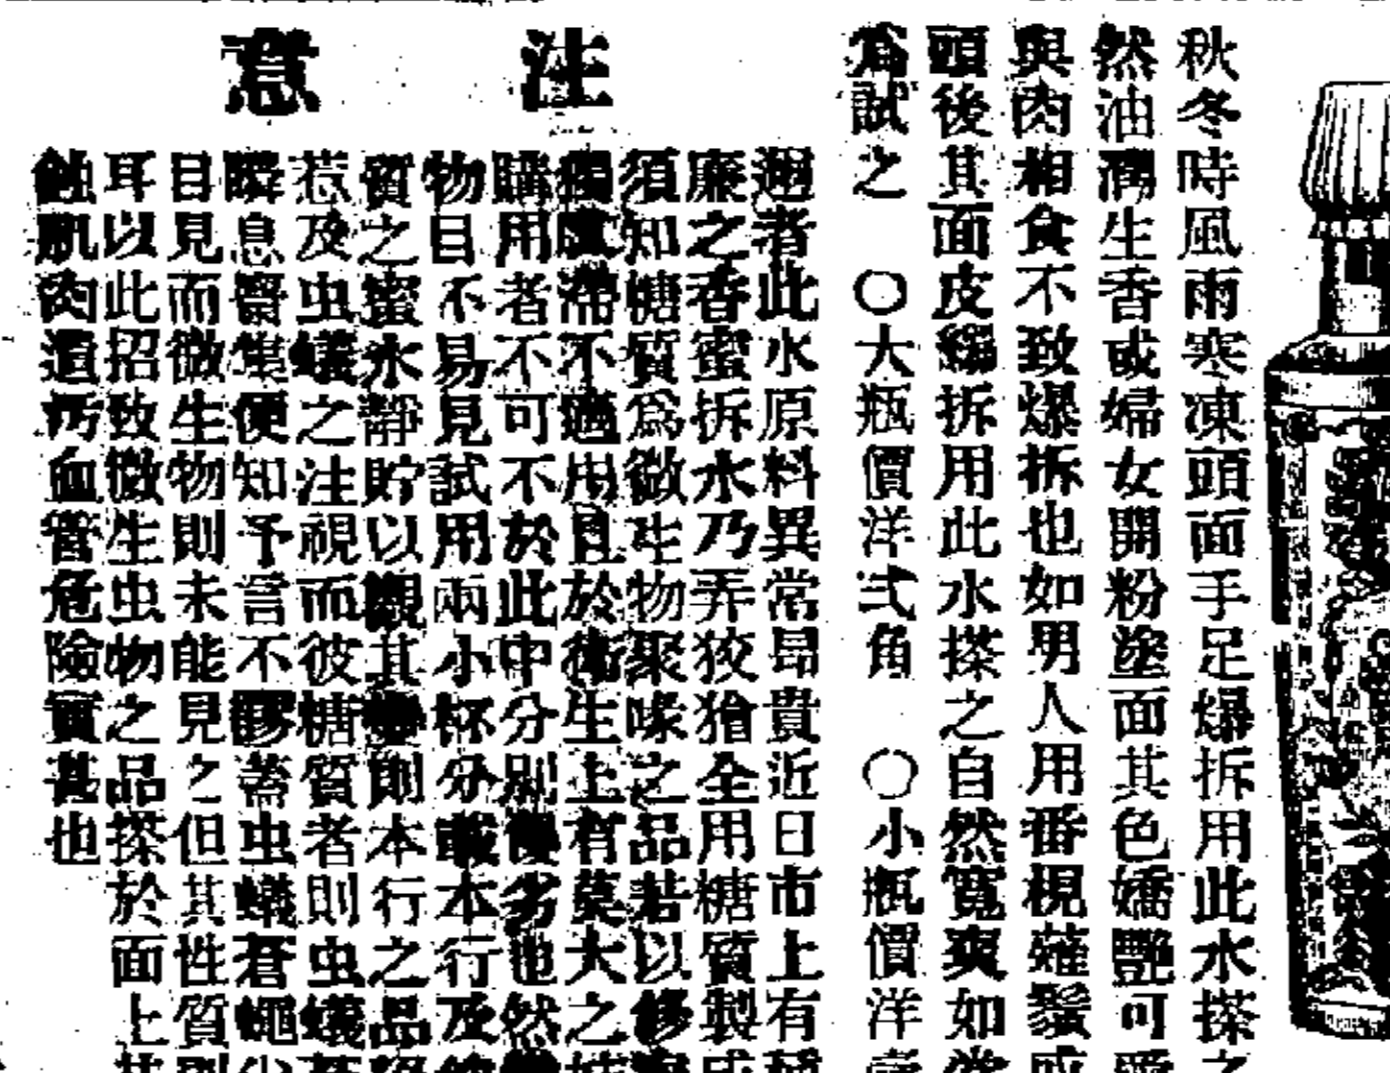 秋冬時風雨寒凍頭面手足爆拆用此水搽之
然油潤生香或婦女開粉塗面其色嬌艷可愛
與肉相食不致爆拆也如男人用番梘薙鬚或
頭後其面皮繃拆用此水搽之自然寬爽如常
爲試之 〇大瓶價洋弍角 〇小瓶價洋壹
注意
邇者此水原料異常昂貴近日市上有
廉之香蜜拆水乃弄狡猾全用糖質製成
須知糖質爲微生物聚喙之品若以
滯不適用且於衛生上有莫大之
購用者不可不於此中分別優劣也然
物目不易見試用兩小杯分載本行及
質之蜜水靜貯以觀其變則本行之品
惹及虫蟻之注視而彼糖質者則虫蟻
瞬息饗集便知予言不謬蓋虫蟻蒼蠅
目見而微生物則未能見之但其性質則
耳以此招致微生虫物之品搽於面上
蝕肌肉遺污血管危險實甚也